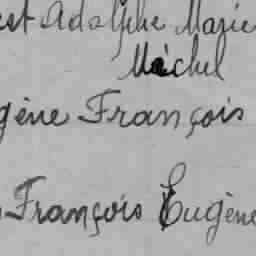 est Adolphe Marie
Michel
gène François
François Eugène